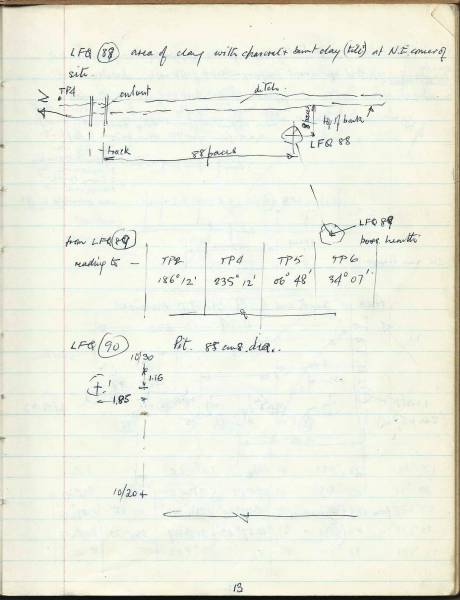 LFQ 88 area of clay with charcoal + burnt clay (tile) at N.E. corner of
site.
N
TP4
culvert
ditch
8 paces
top of bank
track
88 paces
LFQ 88
LFQ 89
from LFQ 89
reading to —
TP2
TP4
TP5
TP6
186° 12'
235° 12'
06° 48'
34° 07'
LFQ 90 Pit. 85 cms. dia.
10/30
1.16
1.85
10/20 +
13